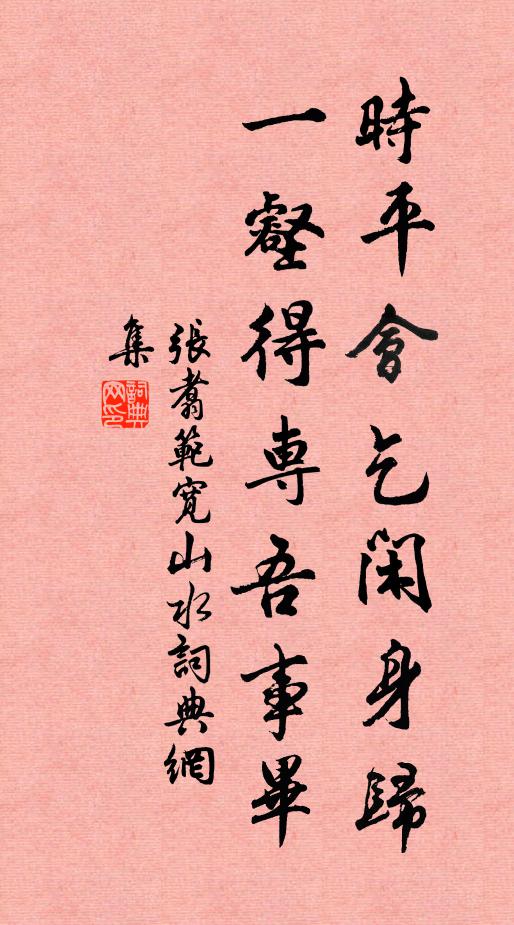 時平會乞閑身歸
一壑得專吾事畢
張翥範寬山水詞典網
集
詞典
网印